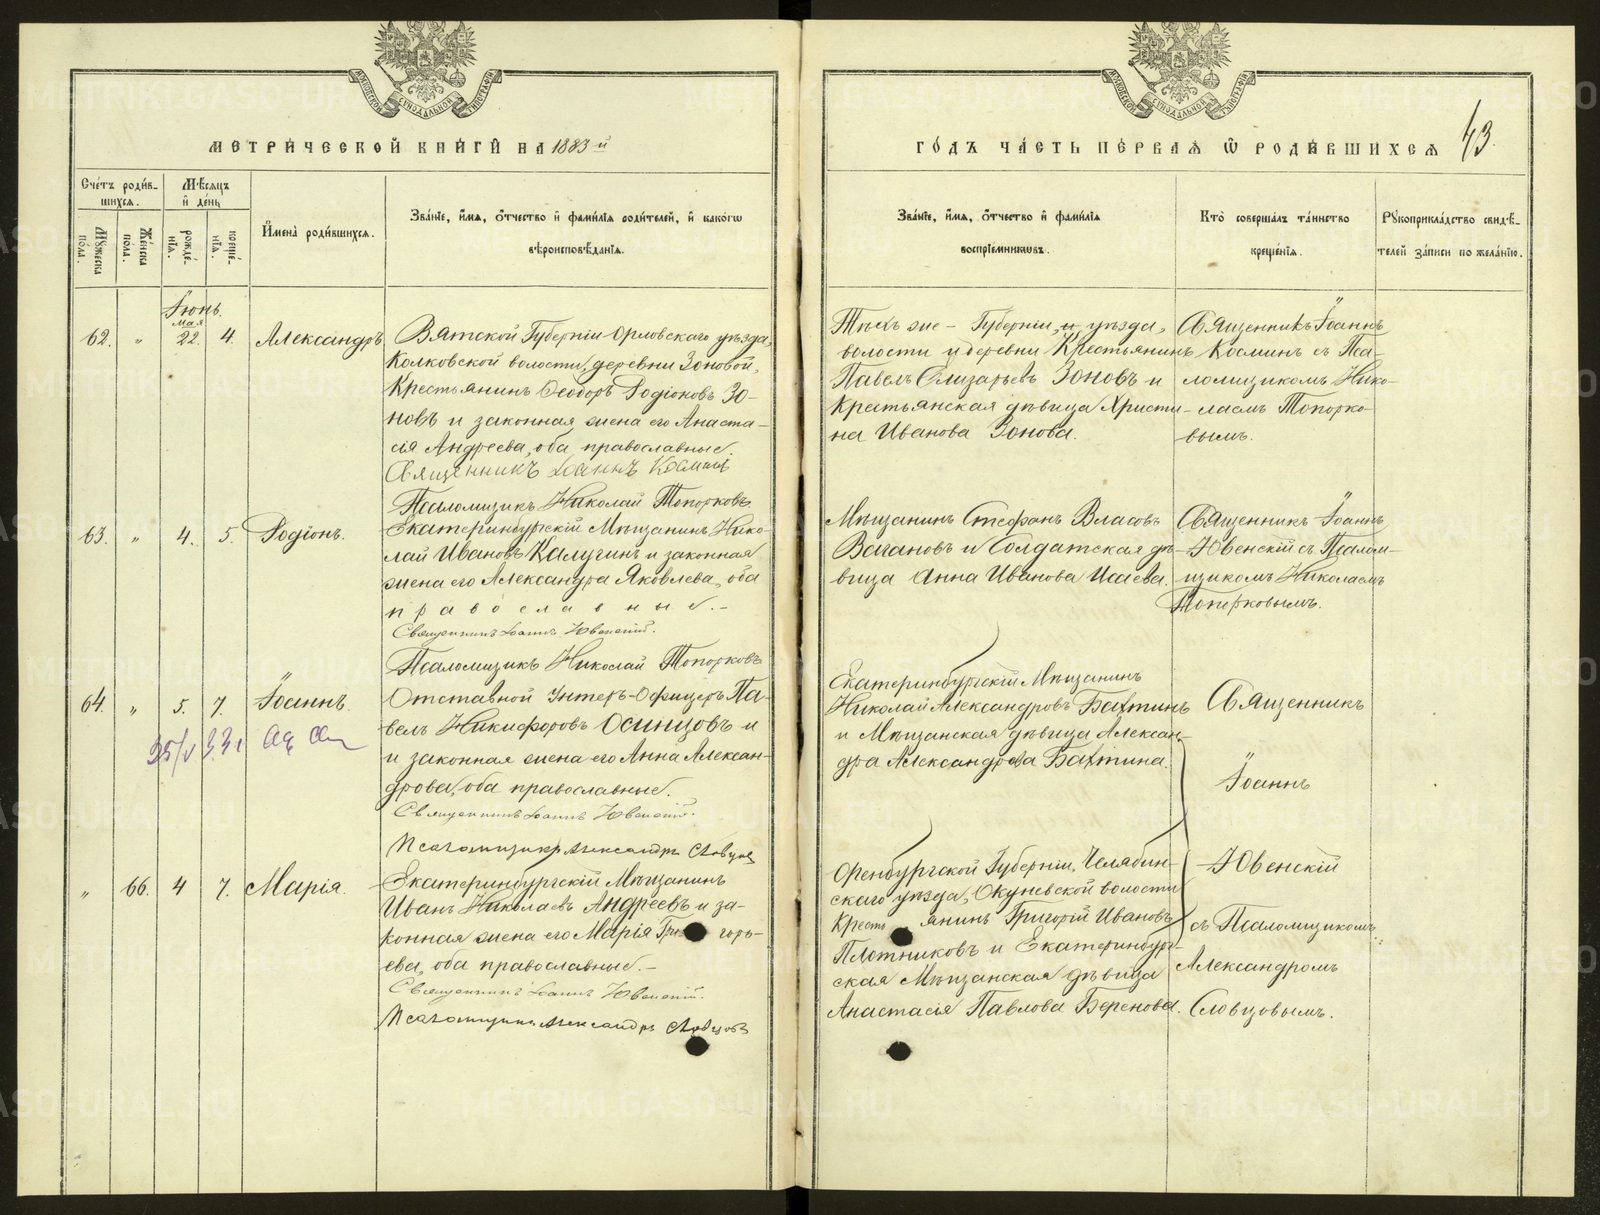 МОСКОВСКОЙ СѴНОДАЛЬНОЙ ТИПОГРАФІИ
МЕТРИ́ЧЕСКОЙ КНИ́ГИ НА 1883 й
Сче́тъ роди́в-
шихся.
Мѣ́сяцъ
и҆ де́нь
Му́жеска
по́ла.
Же́нска
по́ла.
рожде́-
нїѧ.
креще́-
нїѧ.
И҆мена̀ роди́вшихся.
Зва́нїе, и҆́мя, ѻ҆́тчество и҆ фами́лїя роди́телей, и҆ како́гѡ
вѣроисповѣ́данїя.
Іюнь.
мая
62. " 22. 4. Александръ
Вятской Губерніи Орловскаго уѣзда,
Колковской волости, деревни Зоновой,
Крестьянинъ Ѳеодоръ Родіоновъ Зо-
новъ и законная жена его Анаста-
сія Андреева, оба православные.
Священникъ Іоаннъ Косминъ
Псаломщикъ Николай Топорковъ
63. " 4. 5. Родіонъ.
Екатеринбургскій Мѣщанинъ Нико-
лай Ивановъ Калугинъ и законная
жена его Александра Яковлева, оба
православные.-
Священникъ Іоаннъ Ювенскій.
Псаломщикъ Николай Топорковъ
64. " 5. 7. Іоаннъ.
Отставной Унтеръ-Офицеръ Па-
велъ Никифоровъ Осинцовъ и
и законная жена его Анна Алексан-
дрова, оба православные.
Священникъ Іоаннъ Ювенскій.
Псаломщикъ Александръ Словцовъ
" 66. 4 7. Марія.
Екатеринбургскій Мѣщанинъ
Иванъ Николаевъ Андреевъ и за-
конная жена его Марія Гри горь-
ева, оба православные.-
Священникъ Іоаннъ Ювенскій.
Псаломщикъ Александръ Словцовъ
МОСКОВСКОЙ СѴНОДАЛЬНОЙ ТИПОГРАФІИ
ГО́ДЪ ЧА́СТЬ ПЕ́РВАЯ Ѡ҆ РОДИ́ВШИХСЯ
43.
Зва́нїе, и҆́мя, ѻ҆́тчество и҆ фами́лїя
воспрїе́мникѡвъ.
Кто̀ соверша́лъ та́инство
креще́нїя.
Рꙋкоприкла́дство свидѣ́-
телей за́писи по жела́нїю.
Тѣхъ же - Губерніи, и уѣзда,
волости и деревни Крестьянинъ
Павелъ Елизарьевъ Зоновъ и
Крестьянская дѣвица Христи-
на Иванова Зонова.
Священникъ Іоаннъ
Косминъ съ Пса-
ломщикомъ Нико-
лаемъ Топорко-
вымъ.
Мѣщанинъ Стефанъ Власовъ
Вагановъ и Солдатская дѣ-
вица Анна Иванова Исаева.
Священникъ Іоаннъ
Ювенскій съ Псалом-
щикомъ Николаемъ
Топорковымъ.
Екатеринбургскій Мѣщанинъ
Николай Александровъ Бахтинъ
и Мѣщанская дѣвица Алексан-
дра Александрова Бахтина.
Оренбургской Губерніи, Челябин-
скаго уѣзда, Окуневской волости
Крестьянинъ Григорій Ивановъ
Плотниковъ и Екатеринбург-
ская Мѣщанская дѣвица
Анастасія Павлова Беренова.
Священникъ
Іоаннъ
Ювенскій
съ Псаломщикомъ
Александромъ
Словцовымъ.
METRIKI.GASO-URAL.RU